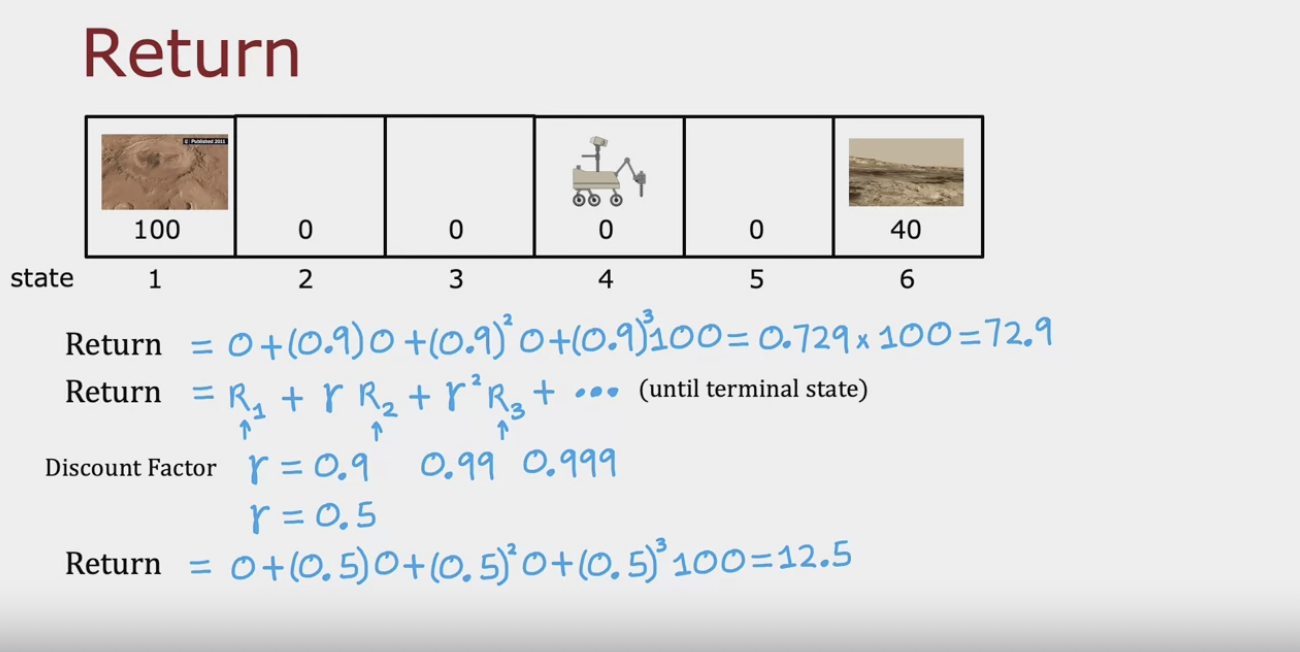 Return
© Published 2011
100 0 0 0 0 40
state 1 2 3 4 5 6
Return = 0+(0.9)0+(0.9)²0+(0.9)³100=0.729×100=72.9
Return = R₁ + γ R₂ + γ² R₃ + ••• (until terminal state)
↑ ↑ ↑
Discount Factor γ = 0.9 0.99 0.999
γ = 0.5
Return = 0+(0.5)0+(0.5)²0+(0.5)³100=12.5